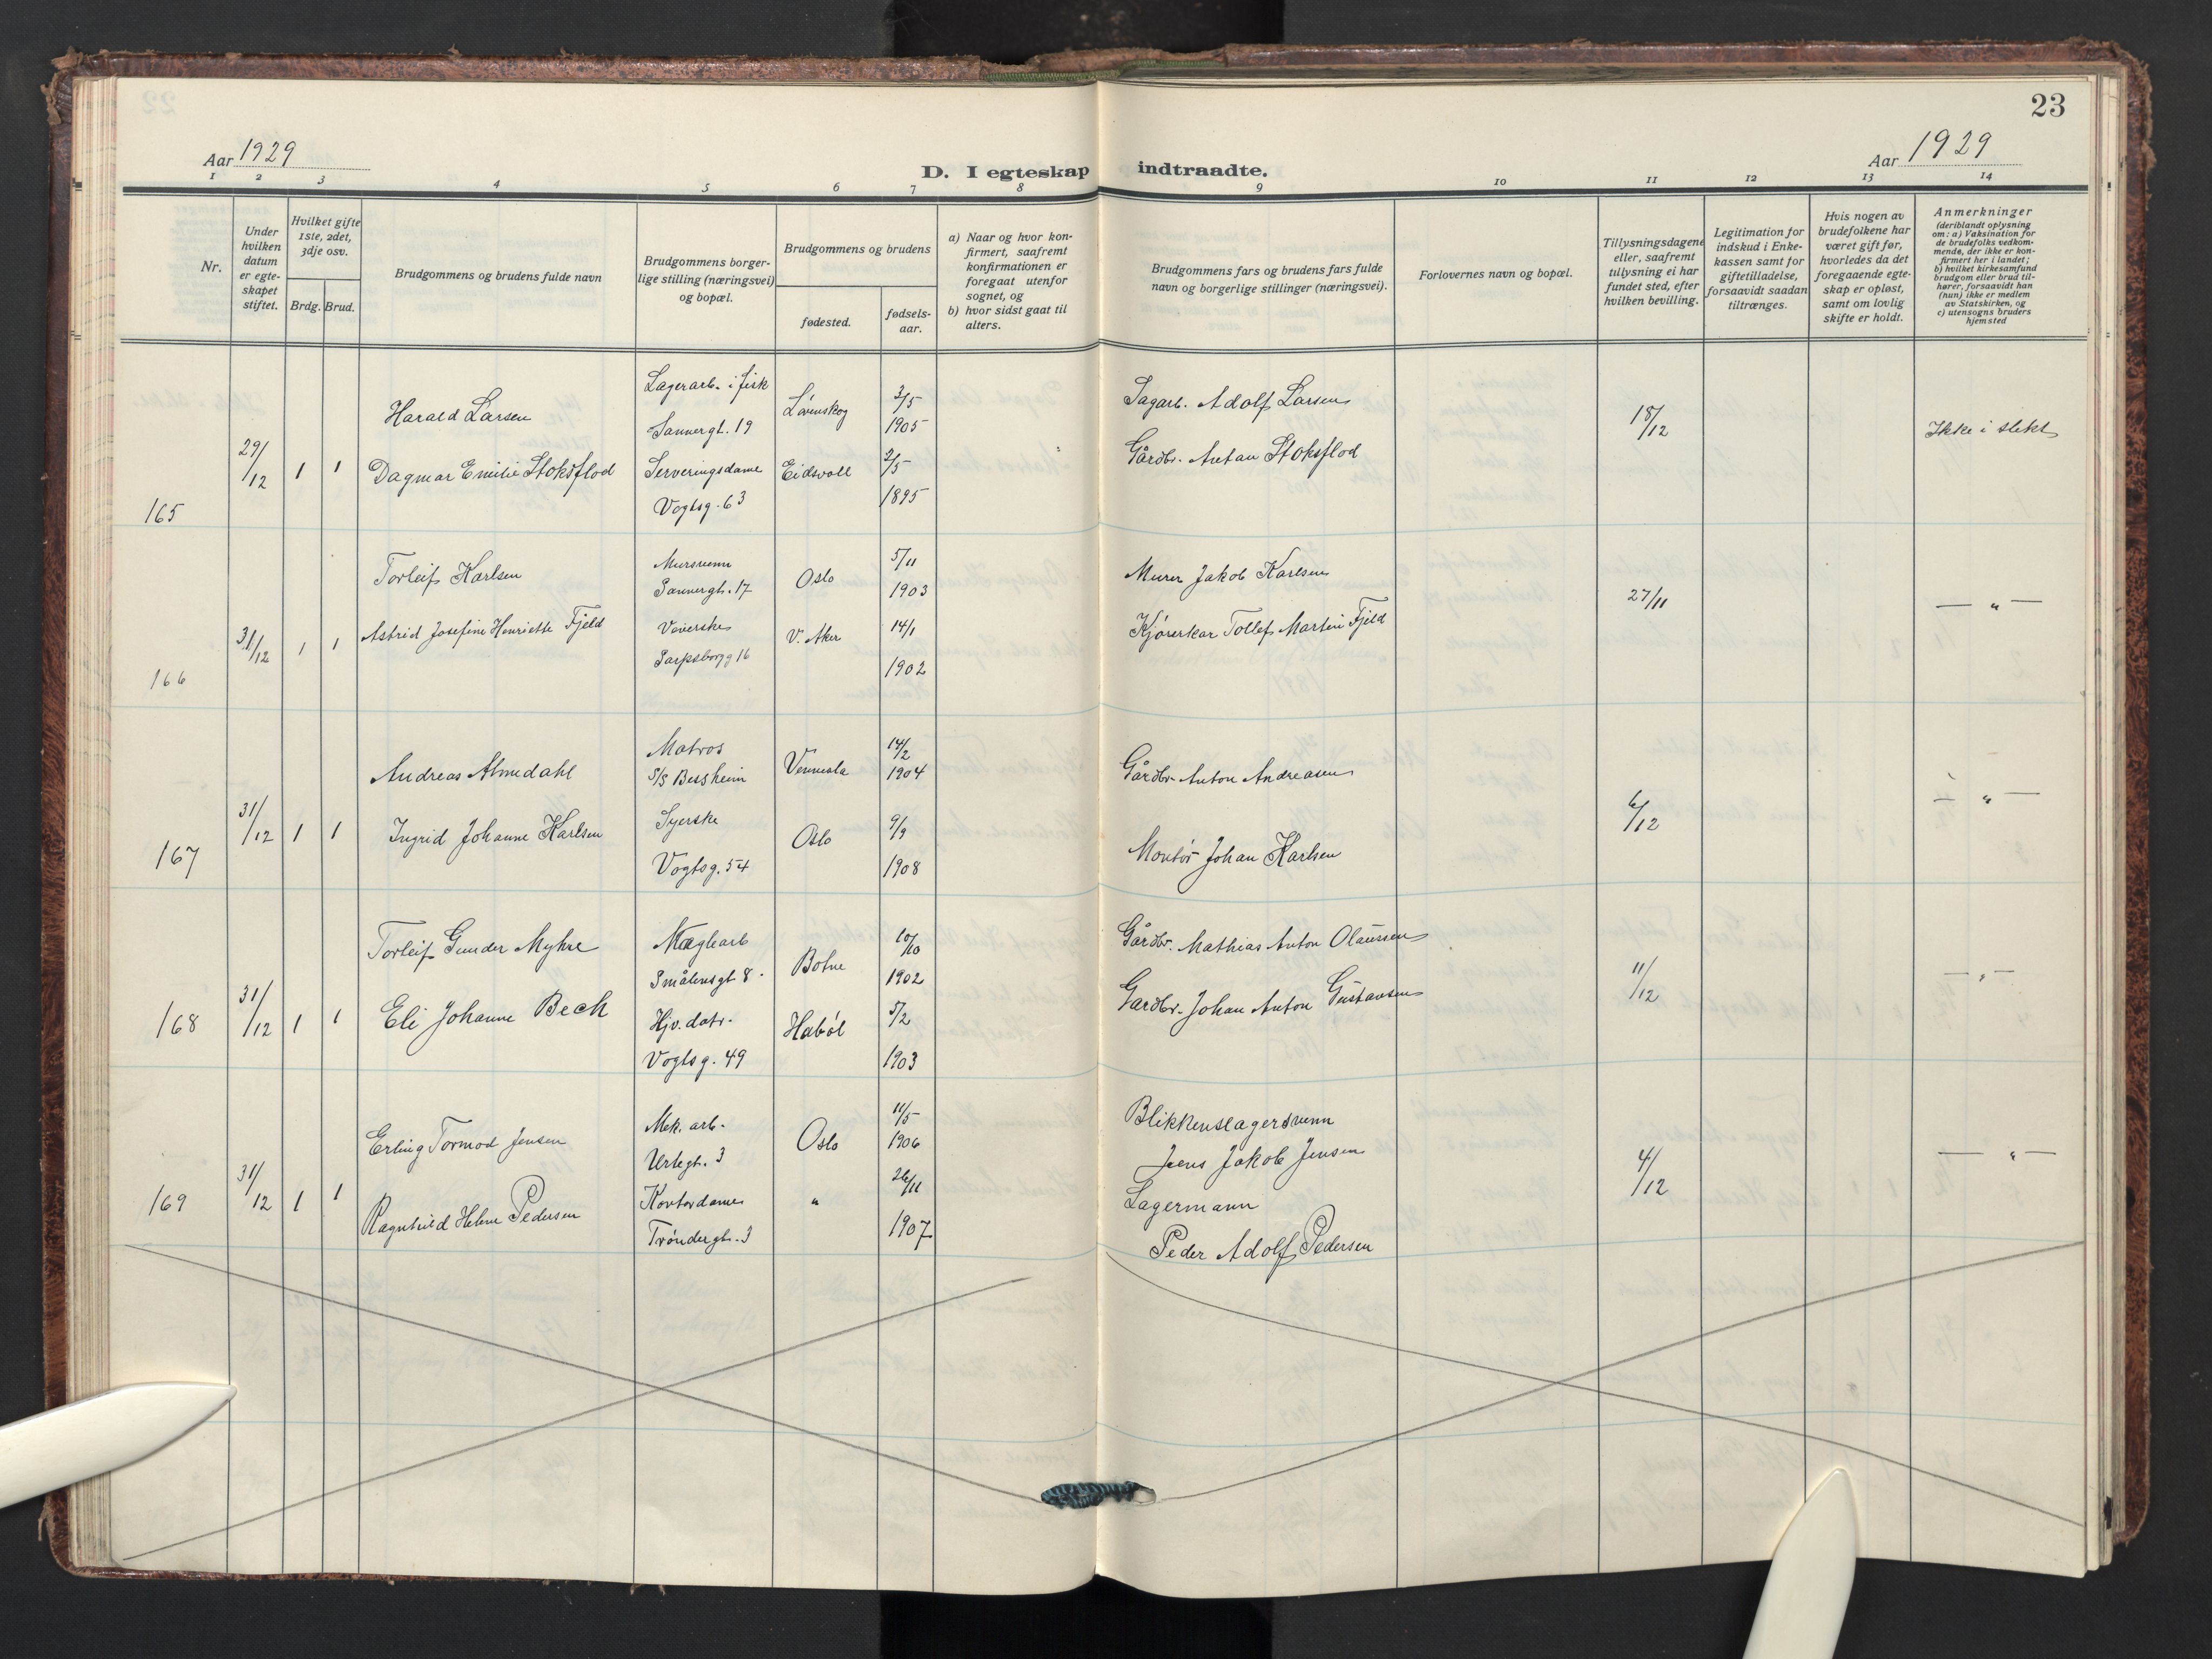 23
Aar 1929
D. I egteskap indtraadte.
Aar 1929
1 2 3 4 5 6 7 8 9 10 11 12 13 14
Nr.
Under hvilken datum er egte-skapet stiftet.
Hvilket gifte 1ste, 2det, 3dje osv.
Brdg. Brud.
Brudgommens og brudens fulde navn
Brudgommens borger-lige stilling (næringsvei) og bopæl.
Brudgommens og brudens
fødested.
fødsels-aar.
a) Naar og hvor kon-firmert, saafremt konfirmationen er foregaat utenfor sognet, og
b) hvor sidst gaat til alters.
Brudgommens fars og brudens fars fulde navn og borgerlige stillinger (næringsvei).
Forlovernes navn og bopæl.
Tillysningsdagene eller, saafremt tillysning ei har fundet sted, efter hvilken bevilling.
Legitimation for indskud i Enke-kassen samt for giftetilladelse, forsaavidt saadan tiltrænges.
Hvis nogen av brudefolkene har været gift før, hvorledes da det foregaaende egte-skap er opløst, samt om lovlig skifte er holdt.
Anmerkninger (deriblandt oplysning om: a) Vaksination for de brudefolks vedkom-mende, der ikke er kon-firmert her i landet; b) hvilket kirkesamfund brudgom eller brud til-hører, forsaavidt han (hun) ikke er medlem av Statskirken, og c) utensogns bruders hjemsted
165
29/12 1 1
Harald Larsen
Lagerarb. i fisk
Sannergt. 19
Lövenskog
3/5 1905
Sagarb. Adolf Larsen
18/12
Ikke i slekt
Dagmar Emilie Stoksflod
Serveringsdame
Vogtsg. 63
Eidsvoll
2/5 1895
Gårdbr. Antan Stoksflod
166
31/12 1 1
Torleif Karlsen
Mursvenn
Sannergt. 17
Oslo
5/11 1903
Murer Jakob Karlsen
27/11
— " —
Astrid Josefine Henriette Fjeld
Veverske
Sarpsborgg 16
V. Aker
14/1 1902
Kjörerkar Tollef Martin Fjeld
167
31/12 1 1
Andreas Almedahl
Matros
S/S Bessheim
Vennesla
14/2 1904
Gårdbr. Anton Andreasen
6/12
— " —
Ingrid Johanne Karlsen
Syerske
Vogtsg. 54
Oslo
9/9 1908
Montör Johan Karlsen
168
31/12 1 1
Torleif Gunder Myhre
Smålensgt 8.
Botne
10/10 1902
Gårdbr. Mathias Anton Olaussen
11/12
— " —
Eli Johanne Bech
Hjv. datr.
Vogtsg. 49
Haböl
5/2 1903
Gardbr. Johan Anton Gustavsen
169
31/12 1 1
Erling Tormod Jensen
Mek. arb.
Urtegt. 3
Oslo
11/5 1906
Blikkenslagersvenn
Jens Jakob Jensen
4/12
— " —
Ragnhild Helene Pedersen
Kontordame
Tröndergt. 3
"
26/11 1907
Lagermann
Peder Adolf Pedersen